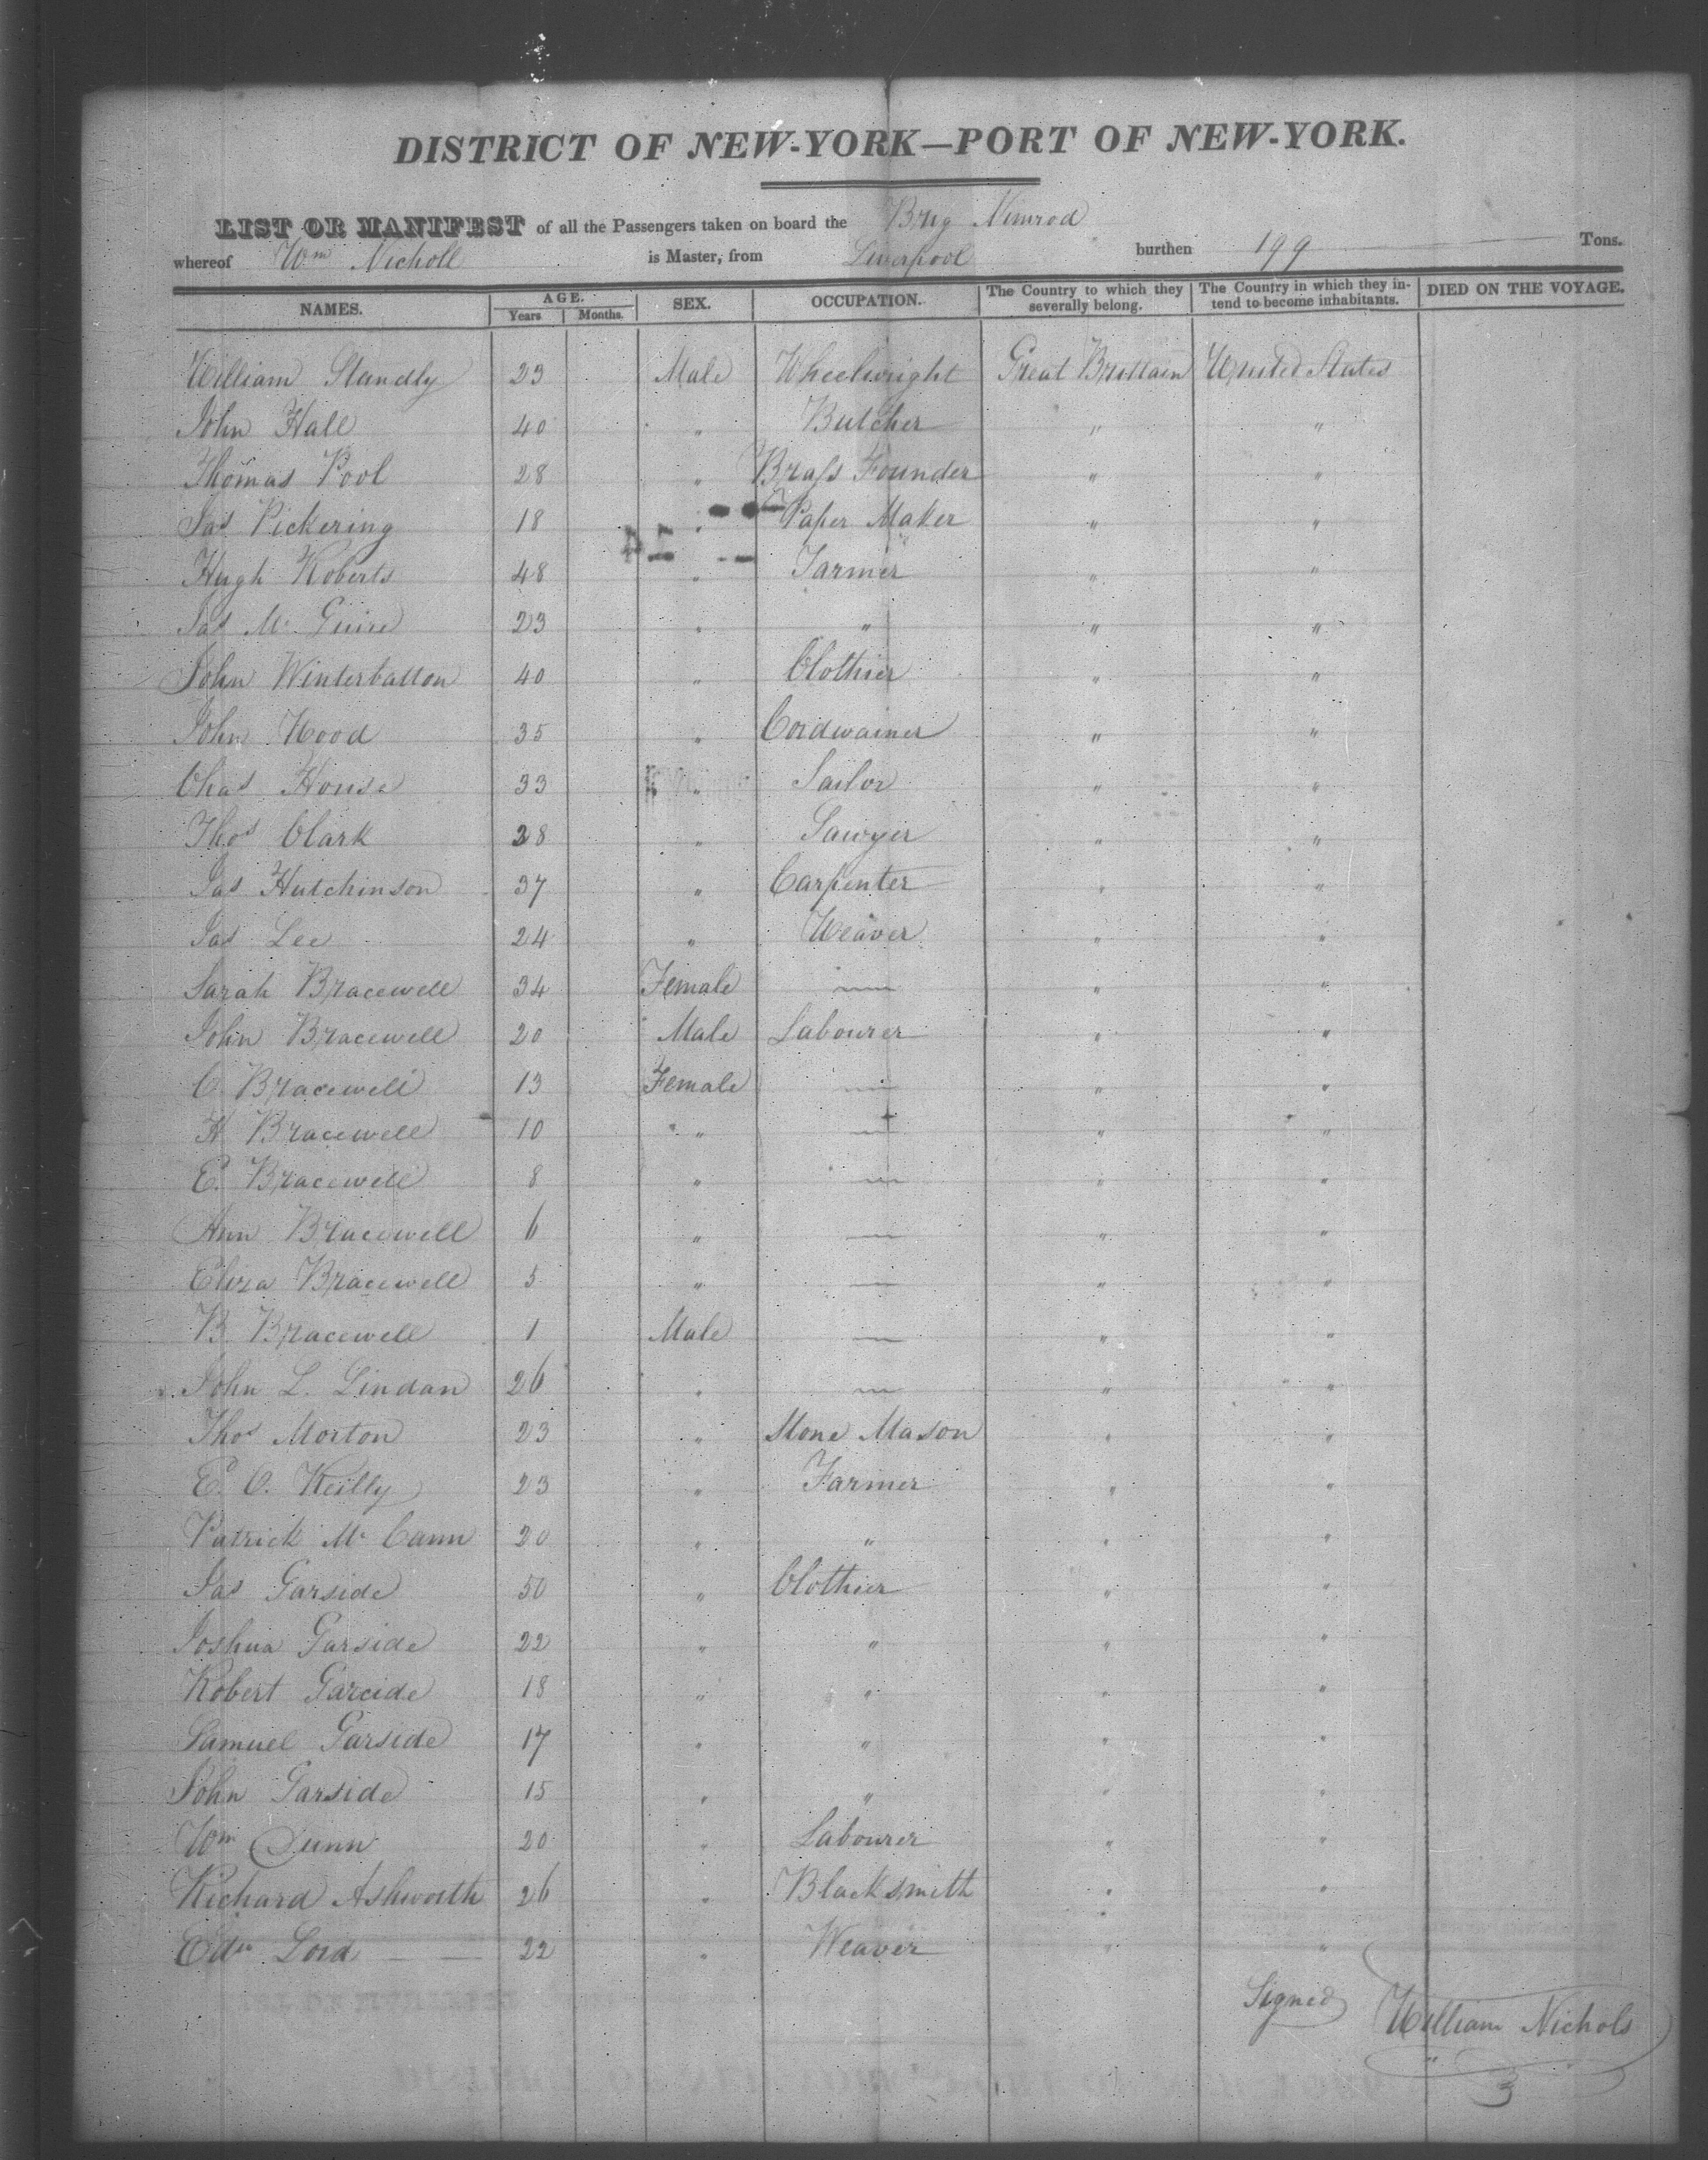 DISTRICT OF NEW-YORK—PORT OF NEW-YORK.
LIST OR MANIFEST of all the Passengers taken on board the Brig Nimrod
whereof Wm Nicholl is Master, from Liverpool burthen 199 Tons.
NAMES. AGE. Years Months. SEX. OCCUPATION. The Country to which they severally belong. The Country in which they intend to become inhabitants. DIED ON THE VOYAGE.
William Standly 23 Male Wheelwright Great Brittain United States
John Hall 40 " Butcher " "
Thomas Pool 28 " Brass Founder " "
Jas Pickering 18 " Paper Maker " "
Hugh Roberts 48 " Farmer " "
Jas Mc Guire 23 " " " "
John Winterbatton 40 " Clothier " "
John Wood 35 " Cordwainer " "
Chas House 33 " Sailor " "
Thos Clark 28 " Sawyer " "
Jas Hutchinson 37 " Carpenter " "
Jas Lee 24 " Weaver " "
Sarah Bracewell 34 Female — " "
John Bracewell 20 Male Labourer " "
C Bracewell 13 Female — " "
H Bracewell 10 " — " "
E. Bracewell 8 " — " "
Ann Bracewell 6 " — " "
Eliza Bracewell 5 " — " "
B. Bracewell 1 Male — " "
John L. Lindan 26 " — " "
Thos Morton 23 " Stone Mason " "
E. O. Reilly 23 " Farmer " "
Patrick Mc Cann 20 " " " "
Jas Garside 50 " Clothier " "
Joshua Garside 22 " " " "
Robert Garcide 18 " " " "
Samuel Garside 17 " " " "
John Garside 15 " " " "
Wm Dunn 20 " Labourer " "
Richard Ashworth 26 " Blacksmith " "
Edw Lord — — 22 " Weaver " "
Signed William Nichols
3